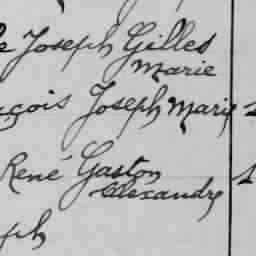 Joseph Gilles
Marie
Joseph Marie
René Gaston
Alexandre
ph